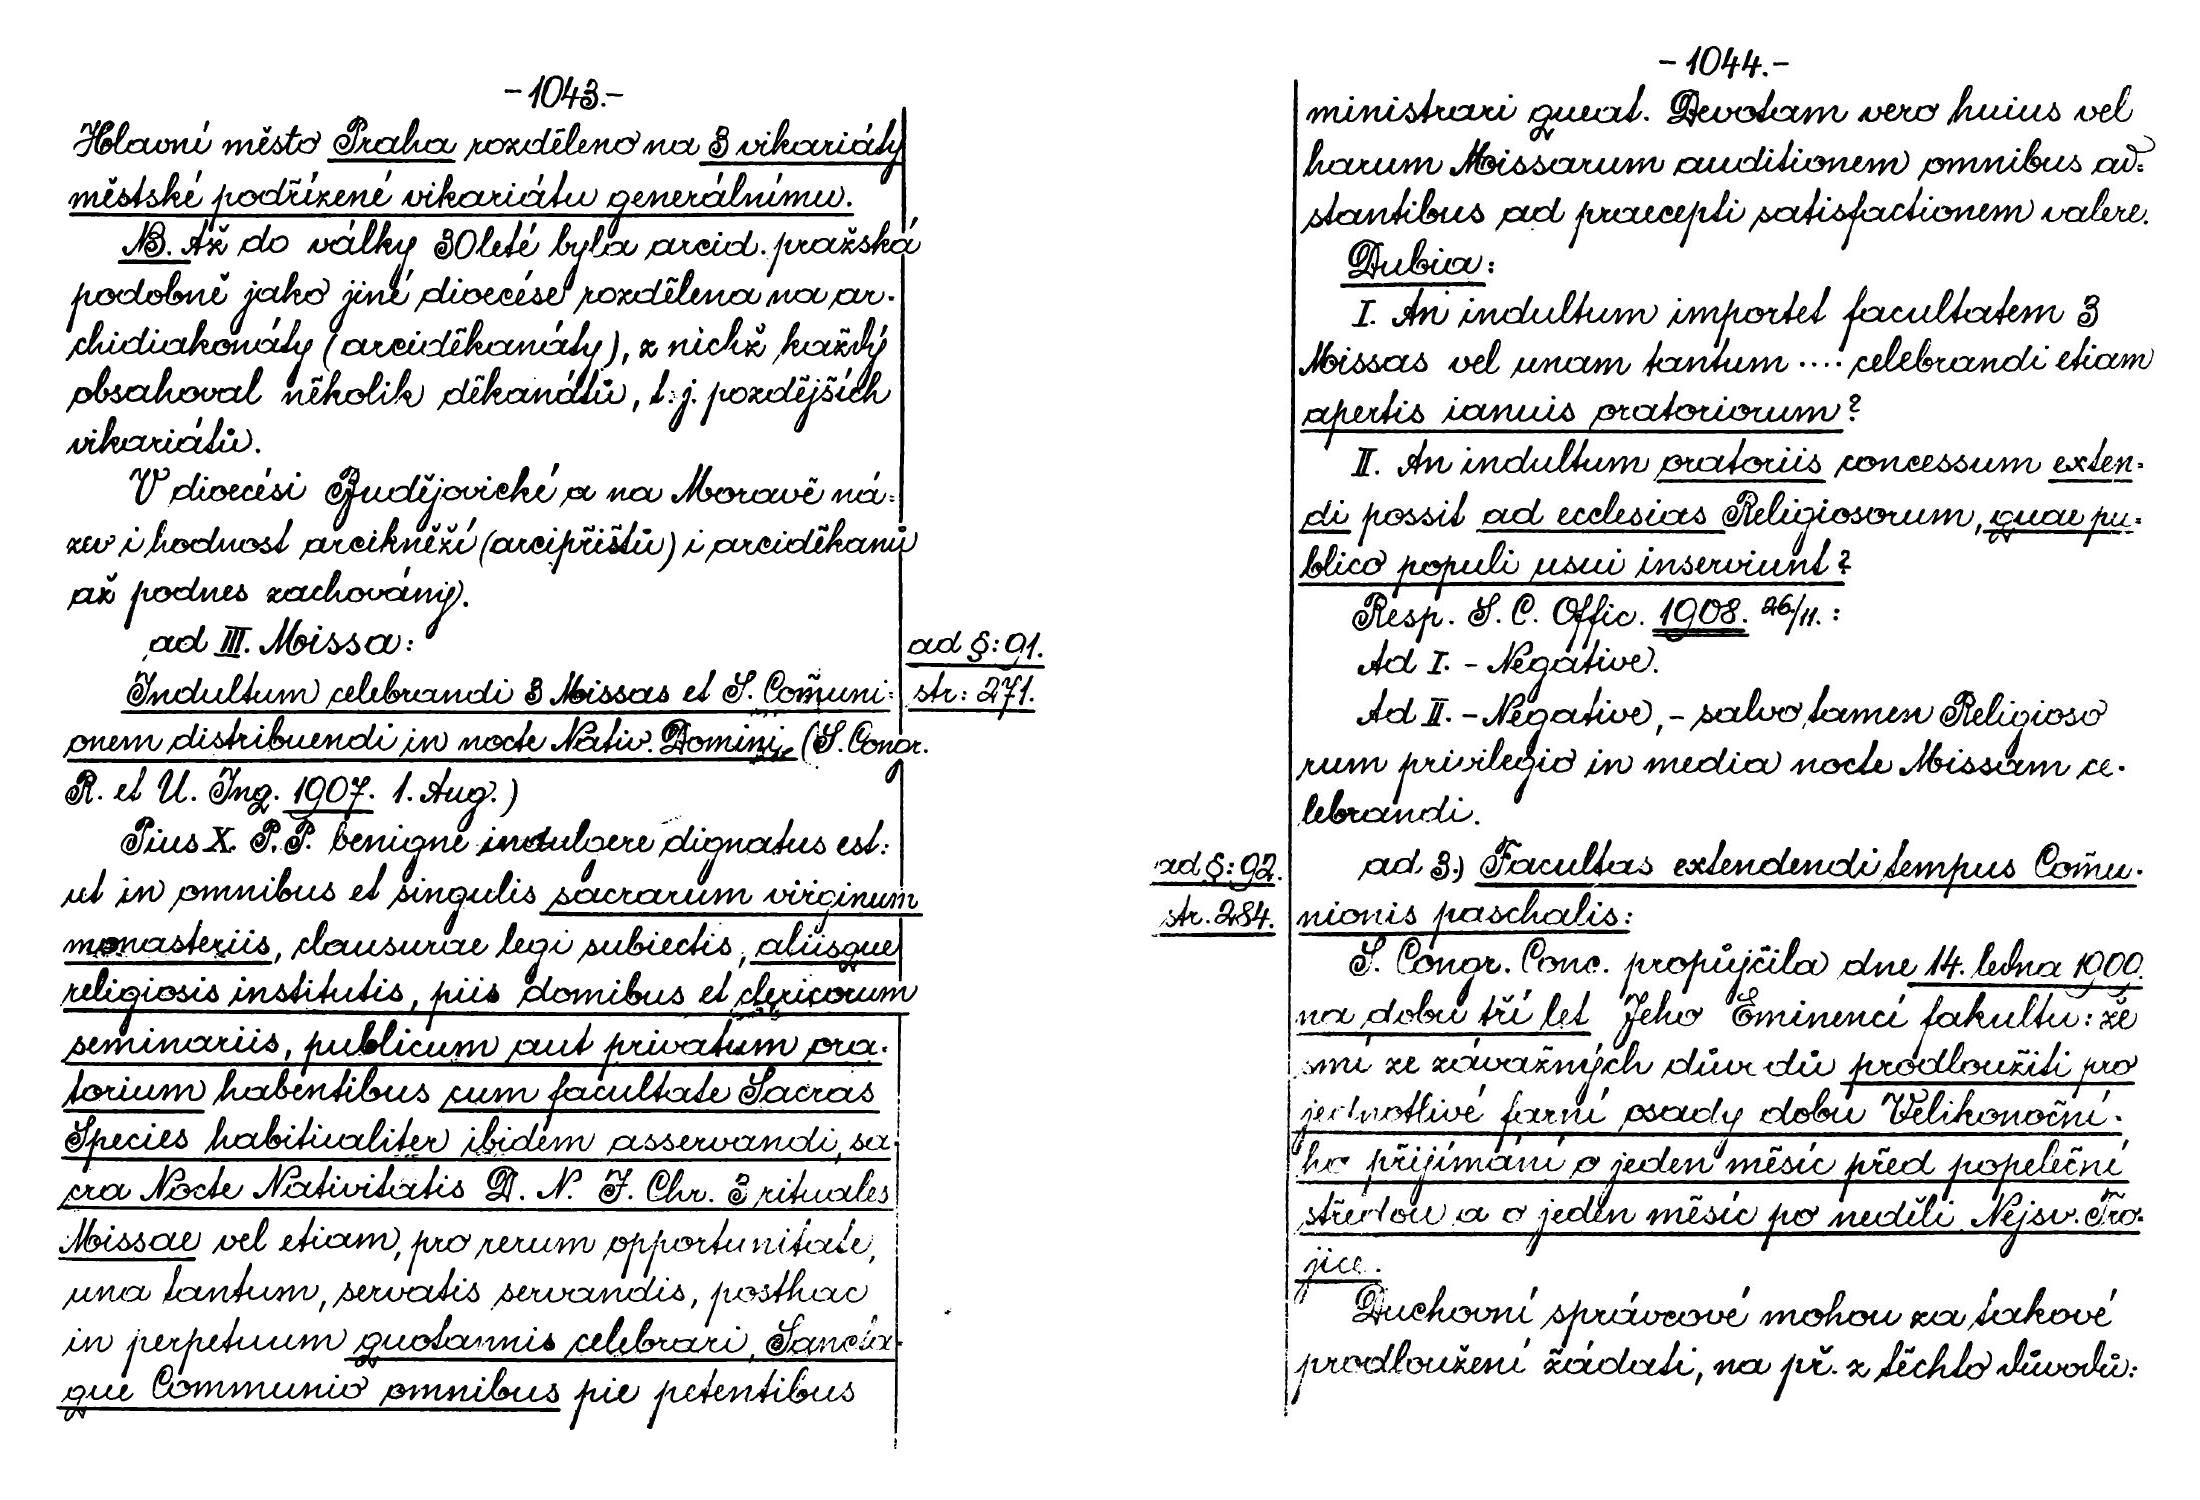 -1043.-
Hlavní město Praha rozděleno na 3 vikariáty
městské podřízené vikariátu generálnímu.
NB. Až do války 30leté byla arcid. pražská
podobně jako jiné dioecése rozdělena na ar-
chidiakonáty (arciděkanáty), z nichž každý
obsahoval několik děkanátů, t.j. pozdějších
vikariátů.
V dioecési Budějovické a na Moravě ná-
zev i hodnost arcikněží (arcipřištů) i arciděkanů
až podnes zachovány.
ad III. Missa:
ad §: 91.
Indultum celebrandi 3 Missas et S. Com̃uni-
str: 271.
onem distribuendi in nocte Nativ. Domini (S. Congr.
R. et U. Inq. 1907. 1. Aug.)
Pius X. P.P. benigne indulgere dignatus est:
ut in omnibus et singulis sacrarum virginum
monasteriis, clausurae legi subiectis, aliisque
religiosis institutis, piis domibus et clericorum
seminariis, publicum aut privatum ora-
torium habentibus cum facultate Sacras
Species habitualiter ibidem asservandi, sa-
cra Nocte Nativitatis D. N. J. Chr. 3 rituales
Missae vel etiam, pro rerum opportunitate,
una tantum, servatis servandis, posthac
in perpetuum quotannis celebrari, Sancta-
que Communio omnibus pie petentibus
-1044.-
ministrari queat. Devotam vero huius vel
harum Missarum auditionem omnibus ad-
stantibus ad praecepti satisfactionem valere.
Dubia:
I. An indultum importet facultatem 3
Missas vel unam tantum .... celebrandi etiam
apertis ianuis oratoriorum?
II. An indultum oratoriis concessum exten-
di possit ad ecclesias Religiosorum, quae pu-
blico populi usui inserviunt?
Resp. S. C. Offic. 1908. 26/11. :
Ad I. - Negative.
Ad II. - Negative, - salvo tamen Religioso
rum privilegio in media nocte Missam ce-
lebrandi.
ad §: 92.
ad 3.) Facultas extendendi tempus Com̃u-
str. 284.
nionis paschalis:
S. Congr. Conc. propůjčila dne 14. ledna 1900
na dobu tří let Jeho Eminenci fakultu: že
smí ze závažných důvodů prodloužiti pro
jednotlivé farní osady dobu Velikonoční-
ho přijímání o jeden měsíc před popeleční
středou a o jeden měsíc po neděli Nejsv. Tro-
jice.
Duchovní správcové mohou za takové
prodloužení žádati, na př. z těchto důvodů: